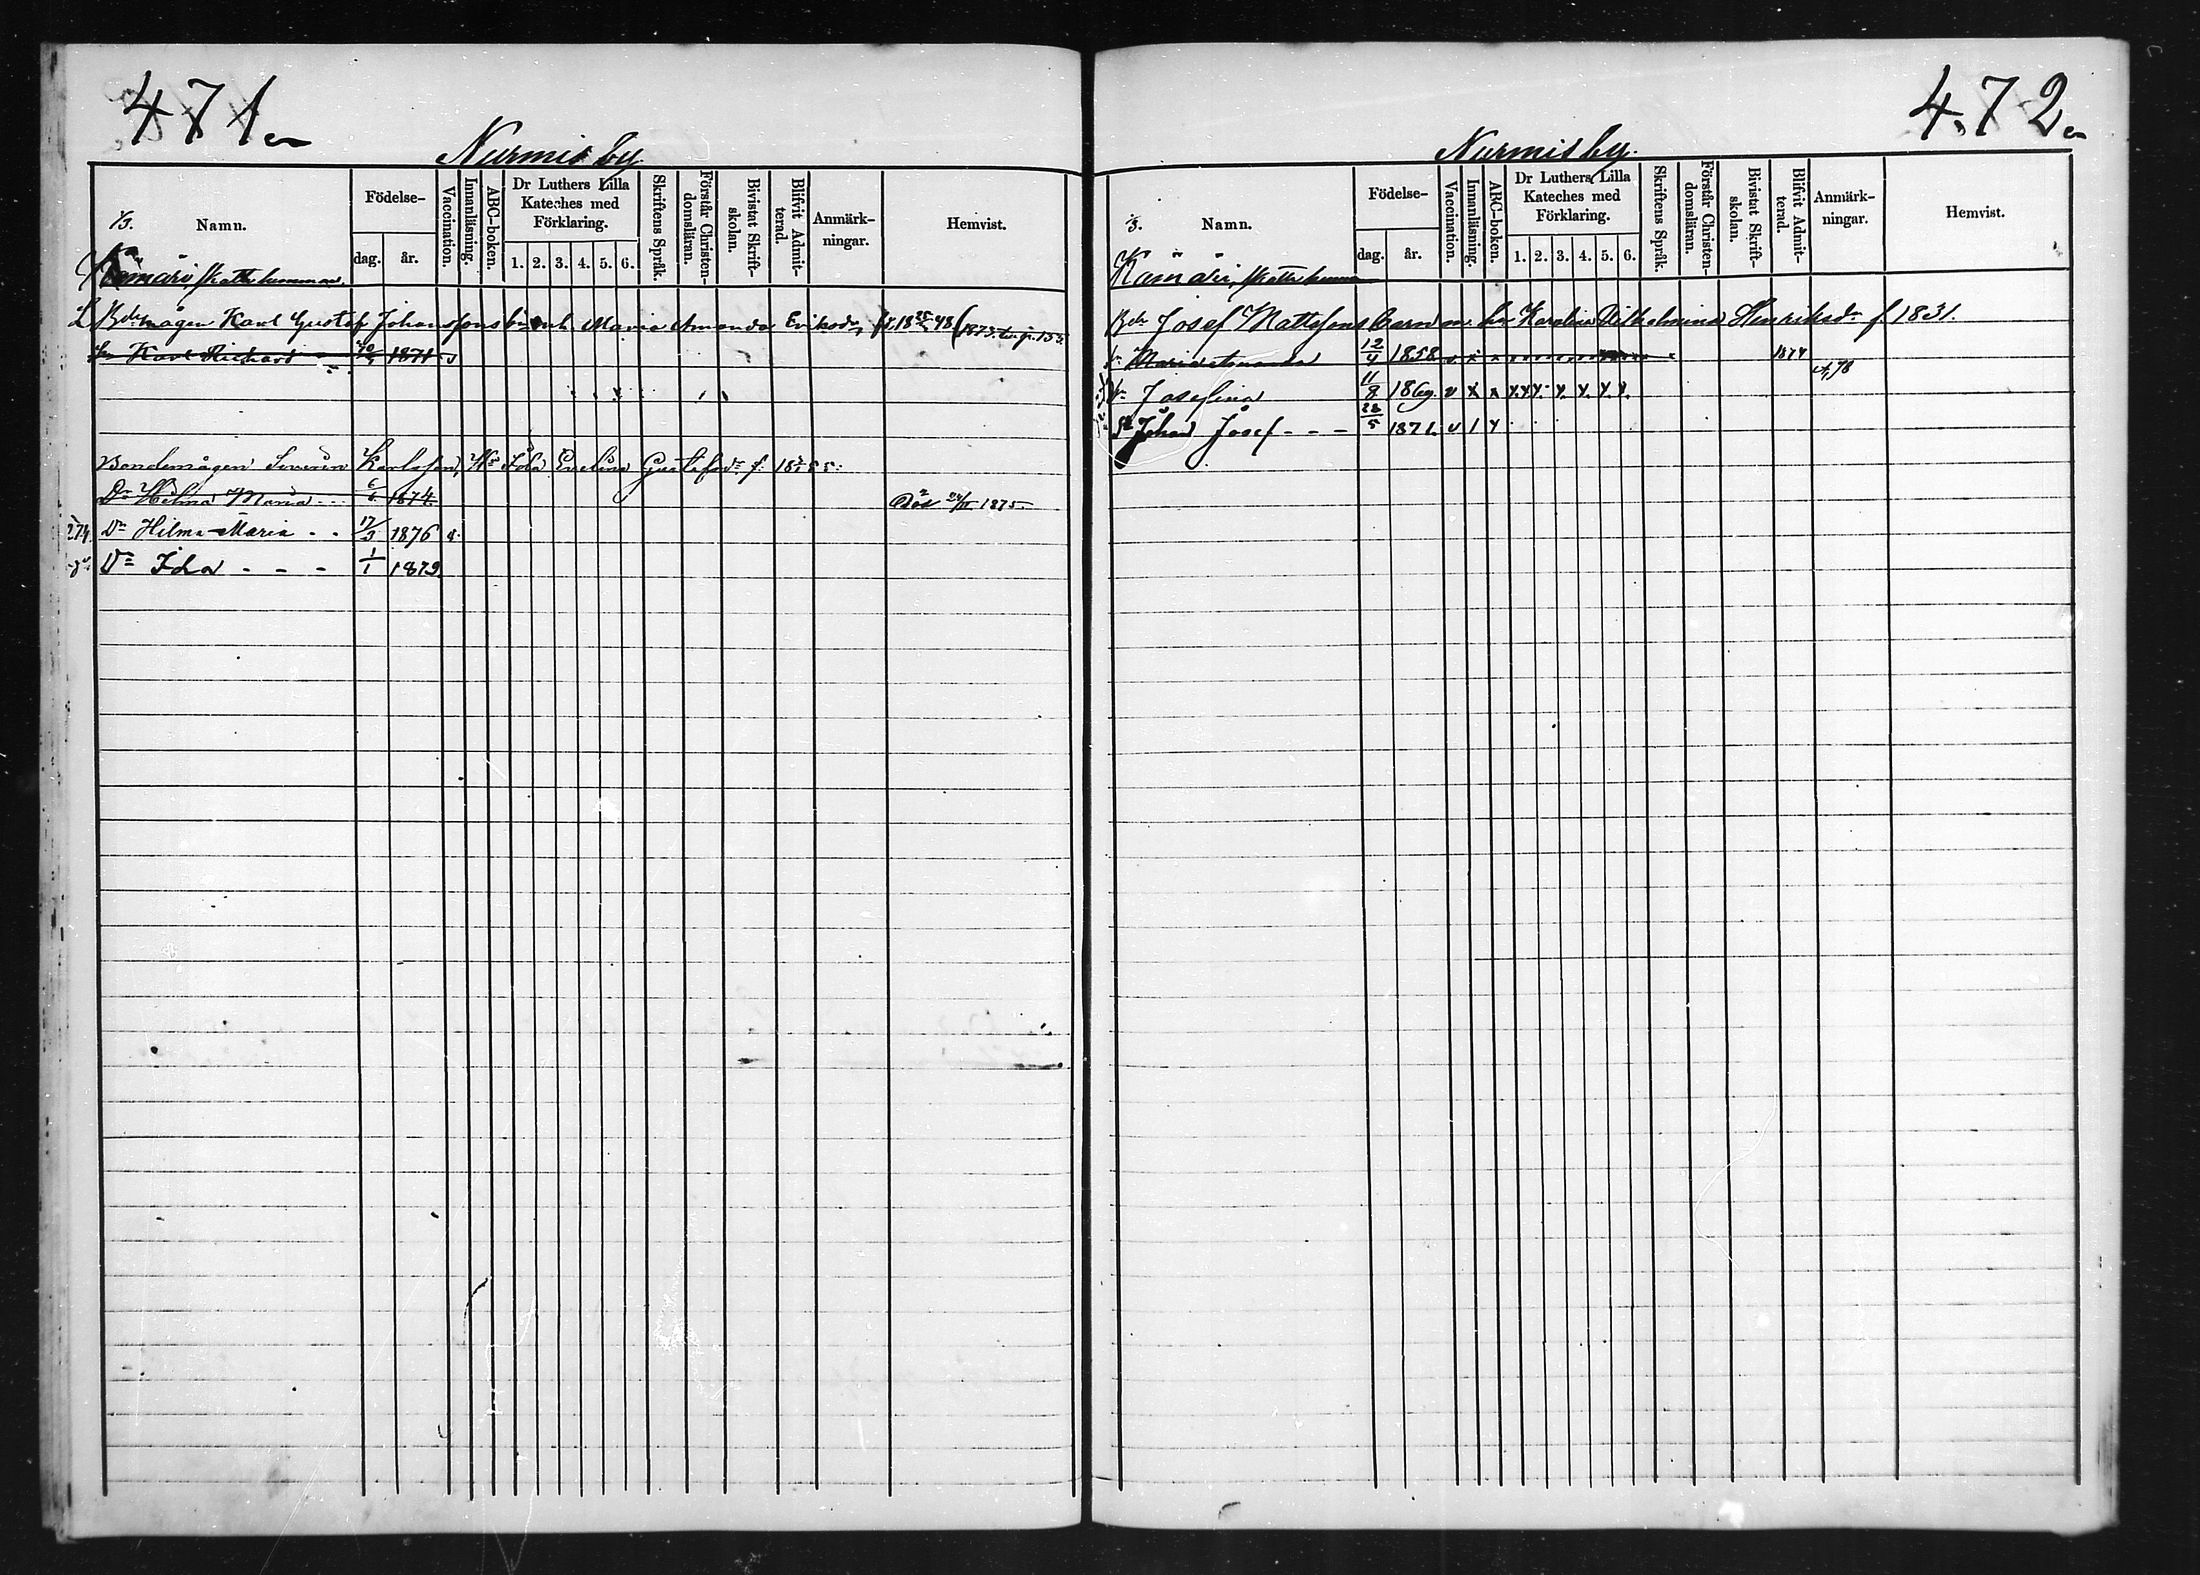 471
Nurmis by
Namn.
Födelse-
dag.
år.
Vaccination.
Innanläsning.
ABC-boken.
Dr Luthers Lilla
Kateches med
Förklaring.
1. 2. 3. 4. 5. 6.
Skriftens Språk.
Förstår Christen-
domsläran.
Bivistat Skrift-
skolan.
Blifvit Admit-
terad.
Anmärk-
ningar.
Hemvist.
Kämäri, skattehemman.
Bdemågen Karl Gustaf Johanssons barn m. h. Maria Amanda Eriksdr,
Sn Karl Richard 1871 v
Bondemågen Severin Karlsson, Hu Ida Evelina Gustafsdr f. 1855.
Dr Hilma Maria - - 6/6 1874. Död 24/11 1875
Dr Hilma Maria - - 17/3 1876 v.
Dr Ida - - - 1/1 1879.
472
Nurmis by.
Namn.
Födelse-
dag.
år.
Vaccination.
Innanläsning.
ABC-boken.
Dr Luthers Lilla
Kateches med
Förklaring.
1. 2. 3. 4. 5. 6.
Skriftens Språk.
Förstår Christen-
domsläran.
Bivistat Skrift-
skolan.
Blifvit Admit-
terad.
Anmärk-
ningar.
Hemvist.
Kämäri, skattehemman
Bde Josef Mattssons barn m. hu Karolina Vilhelmina Henriksdr f 1831.
Dr Maria Amanda 12/4 1858 v x x 1874
Dr Josefina 11/8 186 v x x x x x x x x
Sn Johan Josef - - - 28/5 1871. v